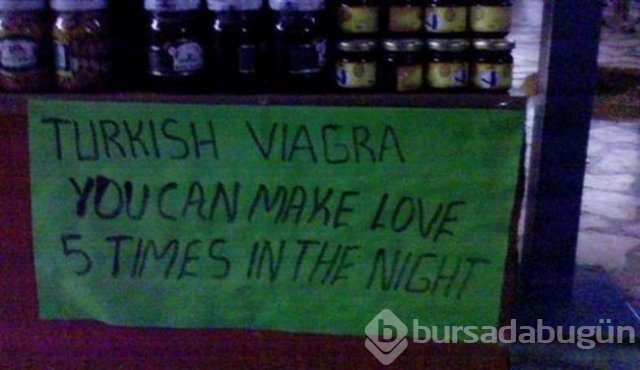 TURKISH VIAGRA
YOU CAN MAKE LOVE
5 TIMES IN THE NIGHT
bursadabugün